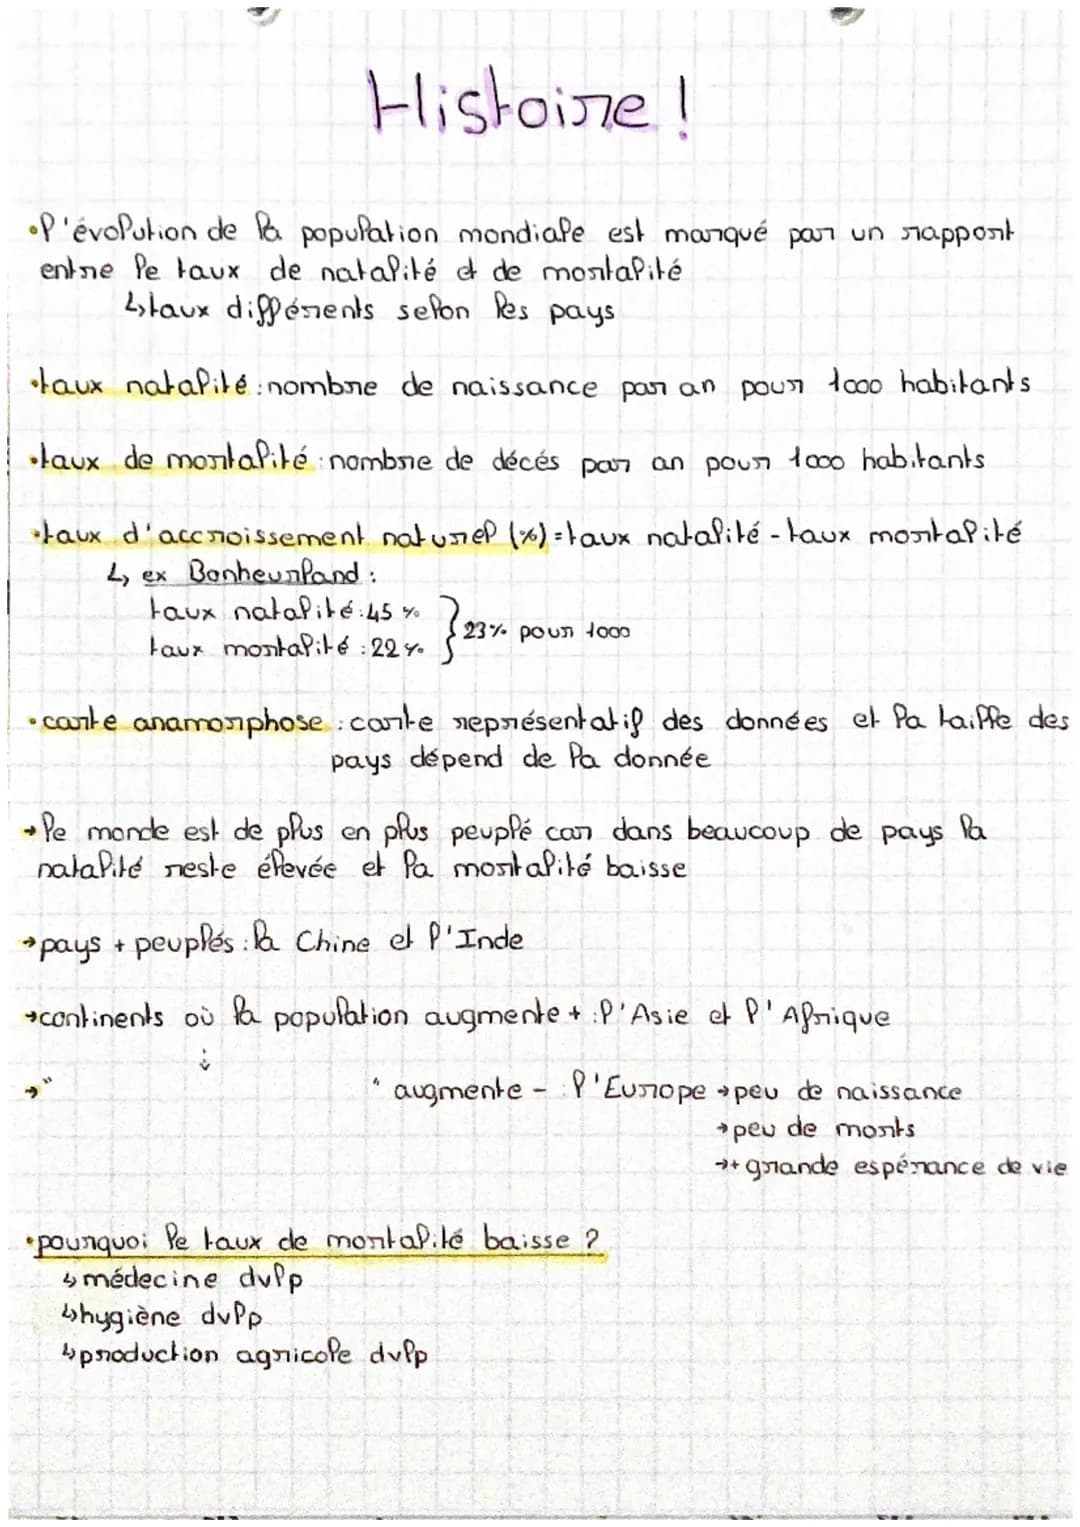 Histoire !
•l'évolution de la population mondiale est marqué par un rapport
entre le taux de natalité et de mortalité
↳taux différents selon les pays
•taux natalité : nombre de naissance par an pour 1000 habitants
•taux de mortalité : nombre de décés par an pour 1000 habitants
•taux d'accroissement naturel (%) = taux natalité - taux mortalité
↳ ex Bonheurland :
taux natalité : 45 %
taux mortalité : 22 %
} 23% pour 1000
•carte anamorphose : carte représentatif des données et la taille des
pays dépend de la donnée
→le monde est de plus en plus peuplé car dans beaucoup de pays la
natalité reste élevée et la mortalité baisse
→pays + peuplés : la Chine et l'Inde
→continents où la population augmente + : l'Asie et l'Afrique
→" " augmente - : l'Europe →peu de naissance
→peu de morts
→+ grande espérance de vie
•pourquoi le taux de mortalité baisse ?
↳médecine dvlp
↳hygiène dvlp
↳production agricole dvlp